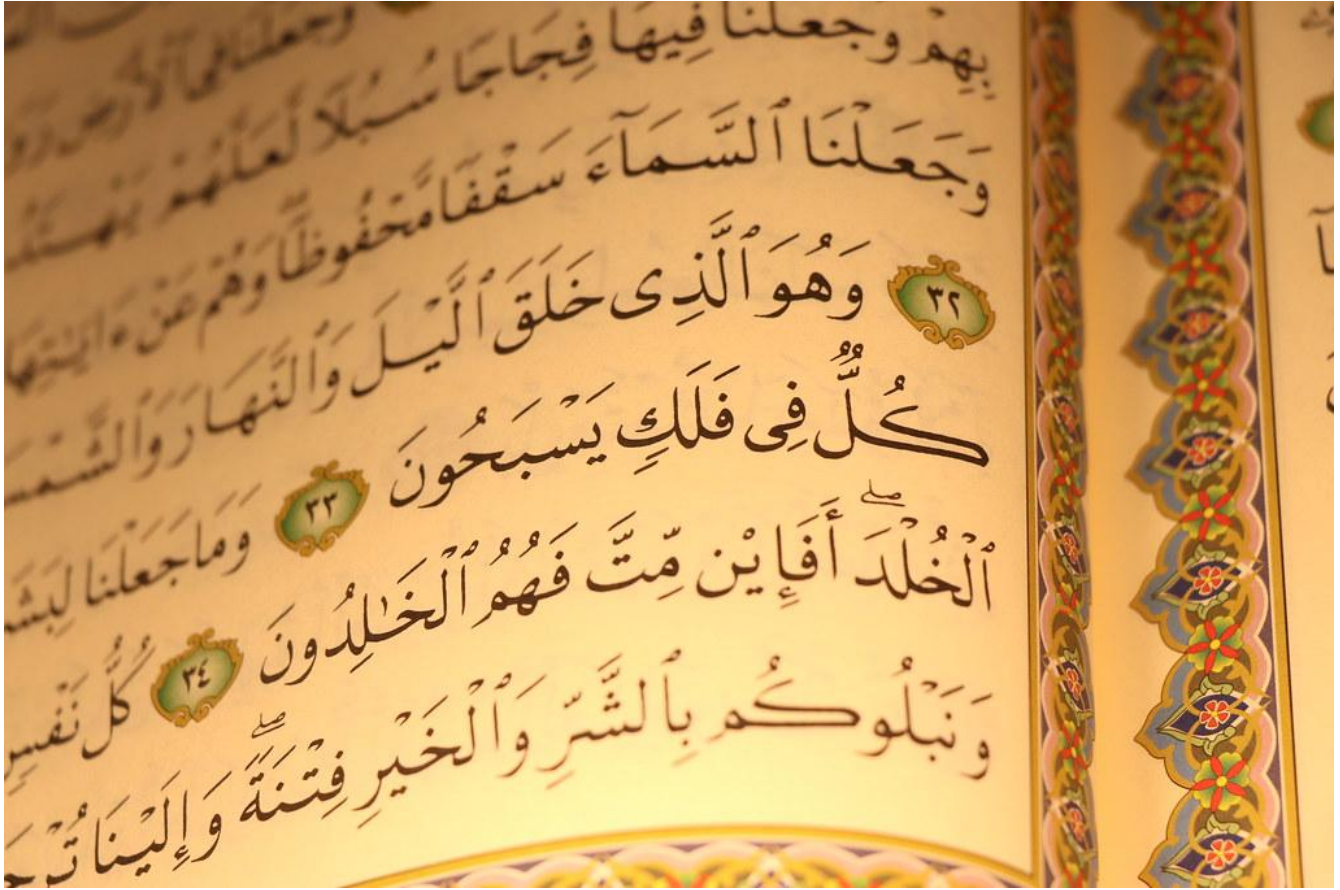 وَجَعَلْنَا فِى ٱلْأَرْضِ
بِهِمْ وَجَعَلْنَا فِيهَا فِجَاجًا سُبُلًا لَّعَلَّهُمْ
وَجَعَلْنَا ٱلسَّمَآءَ سَقْفًا مَّحْفُوظًا وَهُمْ عَنْ ءَايَٰتِهَا
٣٢ وَهُوَ ٱلَّذِى خَلَقَ ٱلَّيْلَ وَٱلنَّهَارَ وَٱلشَّمْسَ
كُلٌّ فِى فَلَكٍ يَسْبَحُونَ ٣٣ وَمَا جَعَلْنَا لِبَشَ
ٱلْخُلْدَ ۖ أَفَإِي۟ن مِّتَّ فَهُمُ ٱلْخَٰلِدُونَ ٣٤ كُلُّ نَفْسٍ
وَنَبْلُوكُم بِٱلشَّرِّ وَٱلْخَيْرِ فِتْنَةً ۖ وَإِلَيْنَا